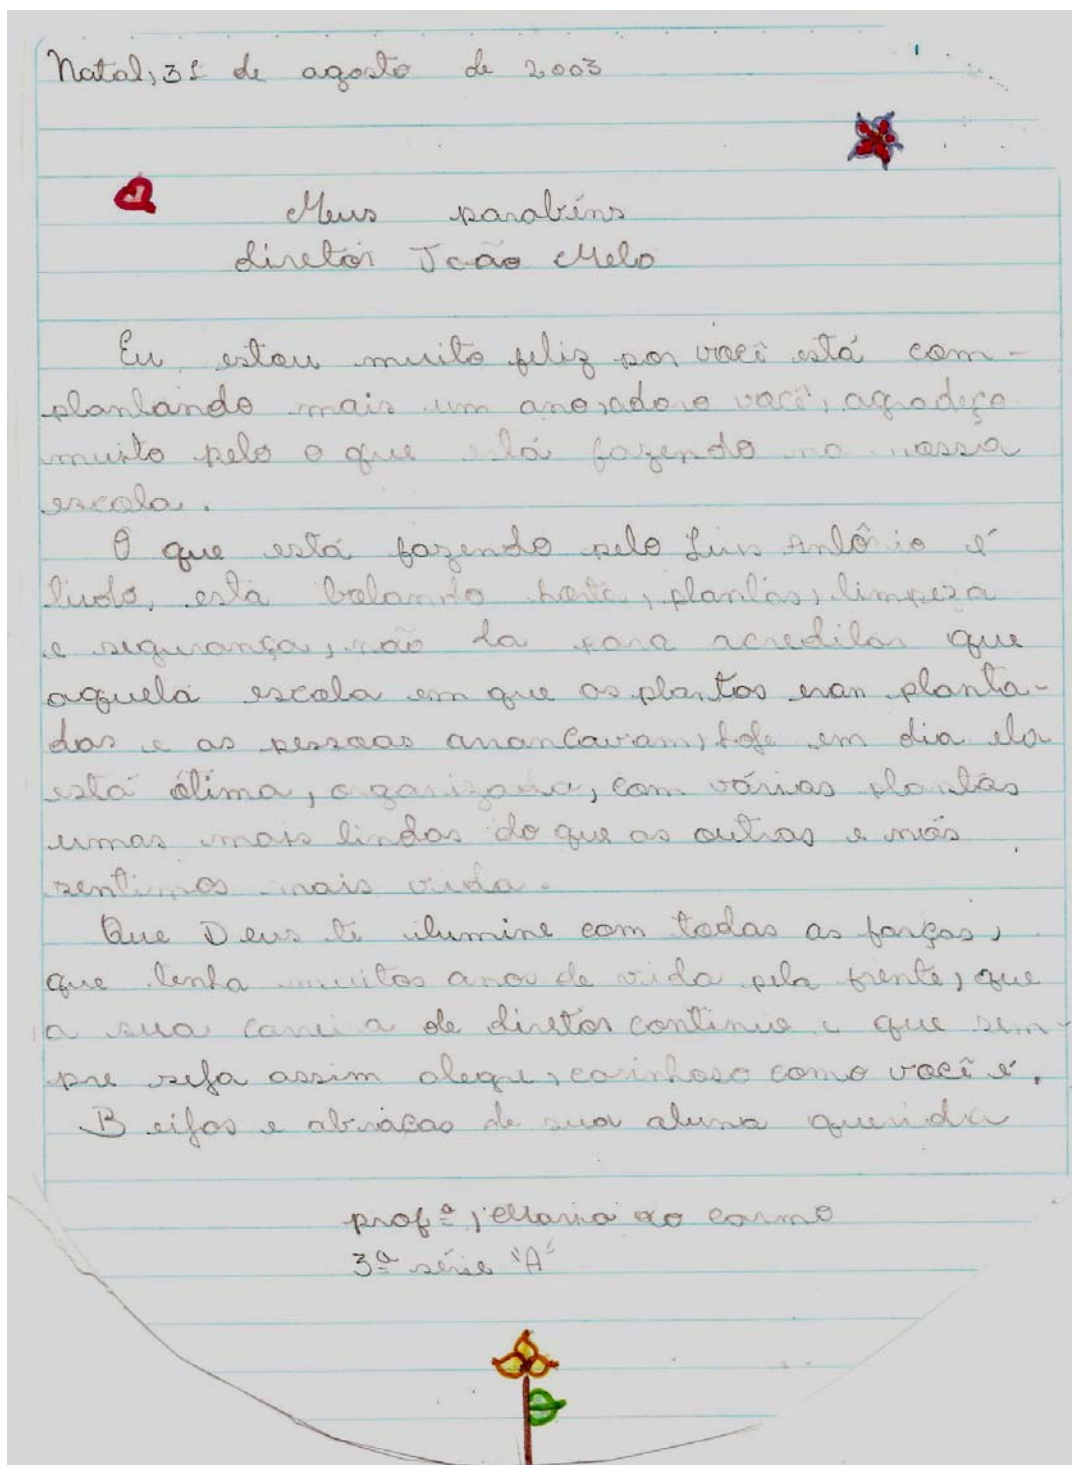 Natal, 31 de agosto de 2003
Meus parabéns
diretor João Melo
Eu estou muito feliz por você está com-
plantando mais um ano, adoro você, agradeço
muito pelo o que está fazendo na nossa
escola.
O que está fazendo pelo Luis Antônio é
tudo, está botando horta, plantas, limpeza
e segurança, não da para acreditar que
aquela escola em que as plantas eran planta-
das e as pessoas arrancavam, hoje em dia ela
está ótima, organizada, com várias plantas
umas mais lindas do que as outras e nós
sentimos mais vida.
Que Deus te ilumine com todas as forças,
que tenha muitos anos de vida pela frente, que
a sua carreira de diretor continue e que sem-
pre seja assim alegre, carinhoso como você é.
Beijos e abraços de sua aluna querida
profª, Maria do Carmo
3ª série "A"